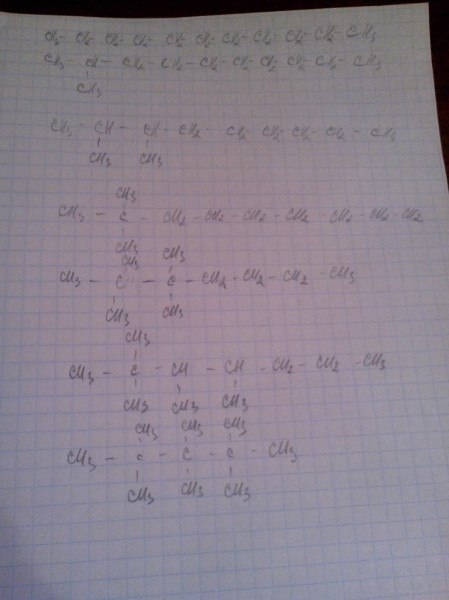 CH3 - CH2 - CH2 - CH2 - CH2 - CH2 - CH2 - CH2 - CH2 - CH2 - CH3
CH3 - CH - CH2 - CH2 - CH2 - CH2 - CH2 - CH2 - CH2 - CH3
CH3
CH3 - CH - CH - CH2 - CH2 - CH2 - CH2 - CH2 - CH3
CH3 CH3
CH3
CH3 - C - CH2 - CH2 - CH2 - CH2 - CH2 - CH2 - CH2
CH3
CH3 CH3
CH3 - C - C - CH2 - CH2 - CH2 - CH3
CH3 CH3
CH3
CH3 - C - CH - CH - CH2 - CH2 - CH3
CH3 CH3 CH3
CH3 CH3 CH3
CH3 - C - C - C - CH3
CH3 CH3 CH3